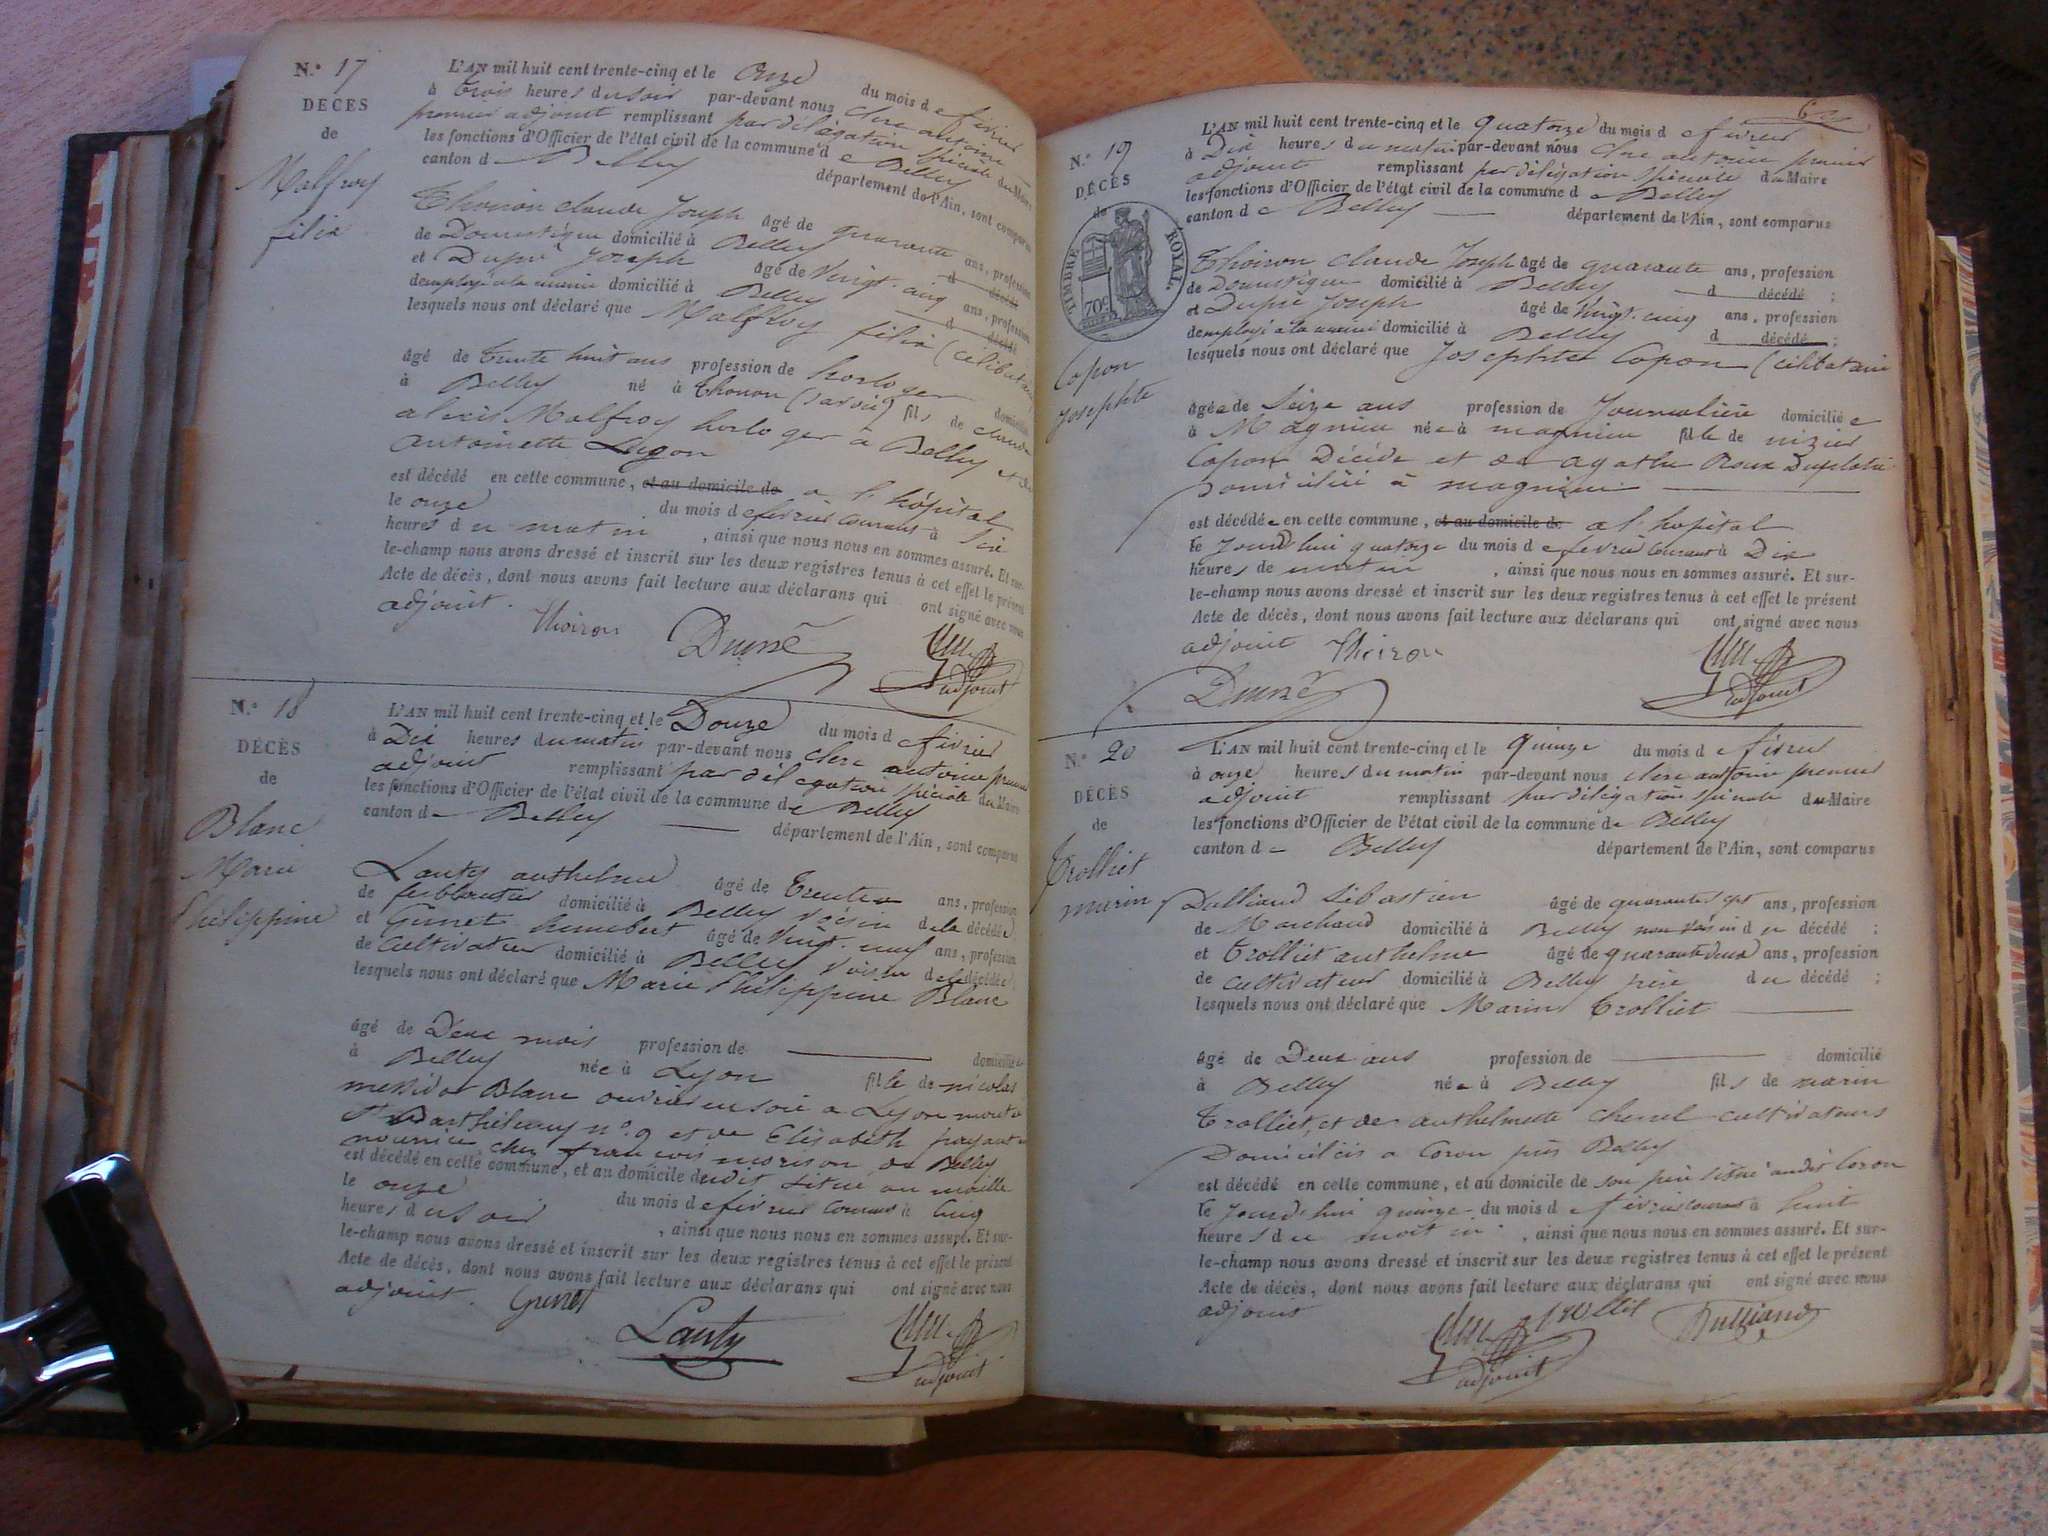 N.° 17
DÉCÈS
de
Malfroy
félix
L'AN mil huit cent trente-cinq et le Onze du mois de février
à trois heures du soir par-devant nous clerc antoine
premier adjoint remplissant par délégation spéciale du Maire
les fonctions d'Officier de l'état civil de la commune de Belley
canton de Belley département de l'Ain, sont comparus
Thoiron claude Joseph âgé de quarante ans, profession
de Domestique domicilié à Belley d décédé
et Dupré Joseph âgé de Vingt-cinq ans, profession
d'employé a la mairie domicilié à Belley d décédé
lesquels nous ont déclaré que Malfroy félix (célibataire)
âgé de trente huit ans profession de horloger domicilié
à Belley né à thonon (savoie) fils de claude
alexis Malfroy horloger à Belley et de
antoinette Lugon
est décédé en cette commune, et au domicile de a l'hôpital
le onze du mois de février courant à six
heures du matin, ainsi que nous nous en sommes assuré. Et sur-
le-champ nous avons dressé et inscrit sur les deux registres tenus à cet effet le présent
Acte de décès, dont nous avons fait lecture aux déclarans qui ont signé avec nous
adjoint. Thoiron Dupré
adjoint
N.° 18
DÉCÈS
de
Blanc
Marie
Philippine
L'AN mil huit cent trente-cinq et le Douze du mois de février
à Dix heures du matin par-devant nous clerc antoine premier
adjoint remplissant par délégation spéciale du Maire
les fonctions d'Officier de l'état civil de la commune de Belley
canton de Belley département de l'Ain, sont comparus
Lanty anthelme âgé de trente ans, profession
de ferblantier domicilié à Belley voisin de la décédée
et humbert âgé de Vingt-neuf ans, profession
de Cultivateur domicilié à Belley voisin de la décédée
lesquels nous ont déclaré que Marie Philippine Blanc
âgé de Deux mois profession de domiciliée
à Belley née à Lyon fille de nicolas
messidor Blanc ouvrier en soie a Lyon montée
St Barthélemy n.° 9 et de Elisabeth en
nourrice chez françois morison de Belley
est décédé en cette commune, et au domicile dudit situé au
le onze du mois de février courant à cinq
heures du soir, ainsi que nous nous en sommes assuré. Et sur-
le-champ nous avons dressé et inscrit sur les deux registres tenus à cet effet le présent
Acte de décès, dont nous avons fait lecture aux déclarans qui ont signé avec nous
adjoint.
Lanty
adjoint
N.° 19
DÉCÈS
de
TIMBRE ROYAL.
70c
Copon
Josephte
L'AN mil huit cent trente-cinq et le quatorze du mois de février
à Dix heures du matin par-devant nous clerc antoine premier
adjoint remplissant par délégation spéciale du Maire
les fonctions d'Officier de l'état civil de la commune de Belley
canton de Belley département de l'Ain, sont comparus
Thoiron claude Joseph âgé de quarante ans, profession
de Domestique domicilié à Belley d décédé ;
et Dupré Joseph âgé de Vingt-cinq ans, profession
d'employé a la mairie domicilié à Belley d décédé ;
lesquels nous ont déclaré que Josephte Copon (célibataire
âgée de Seize ans profession de Journalière domiciliée
à Magnieu née à magnieu fille de nizier
Copon Décédé et de agathe Roux
Domiciliée à magnieu
est décédée en cette commune, et au domicile de a l'hopital
le Jourd'hui quatorze du mois de février courant à Dix
heures de matin, ainsi que nous nous en sommes assuré. Et sur-
le-champ nous avons dressé et inscrit sur les deux registres tenus à cet effet le présent
Acte de décès, dont nous avons fait lecture aux déclarans qui ont signé avec nous
adjoint Thoiron
Dupré
adjoint
N.° 20
DÉCÈS
de
trolliet
marin
L'AN mil huit cent trente-cinq et le quinze du mois de février
à onze heures du matin par-devant nous clerc antoine premier
adjoint remplissant par délégation spéciale du Maire
les fonctions d'Officier de l'état civil de la commune de Belley
canton de Belley département de l'Ain, sont comparus
Dulliand Sébastien âgé de quarante sept ans, profession
de Marchand domicilié à Belley non voisin du décédé ;
et trolliet anthelme âgé de quarante deux ans, profession
de cultivateur domicilié à Belley du décédé ;
lesquels nous ont déclaré que Marin trolliet
âgé de Deux ans profession de domicilié
à Belley née à Belley fils de marin
trolliet, et de anthelmette cultivateurs
Domiciliés a Coron près Belley
est décédé en cette commune, et au domicile de son père situé audit Coron
le Jourd'hui quinze du mois de février courant à huit
heures du matin, ainsi que nous nous en sommes assuré. Et sur-
le-champ nous avons dressé et inscrit sur les deux registres tenus à cet effet le présent
Acte de décès, dont nous avons fait lecture aux déclarans qui ont signé avec nous
adjoint trolliet Dulliand
adjoint